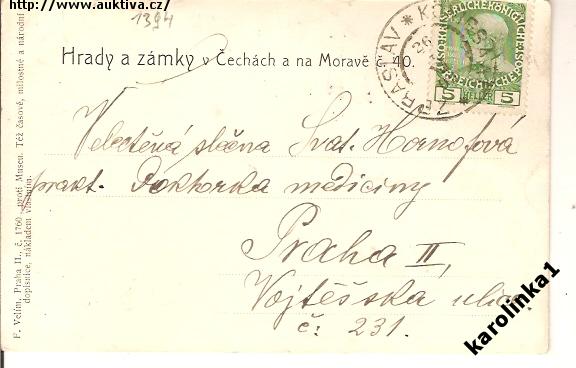 http://www.auktiva.cz/
1394
Hrady a zámky v Čechách a na Moravě č. 40.
ZBRASLAV * K
26
5 HELLER 5
Velectěná slečna Svat. Hornofová
prakt. Doktorka mediciny
Praha II,
Vojtěšska ulice
č: 231.
F. Velím, Praha II., č. 1760 proti Museu. Též časové, milostné a národní
dopisnice, nákladem vlastním.
karolinka1